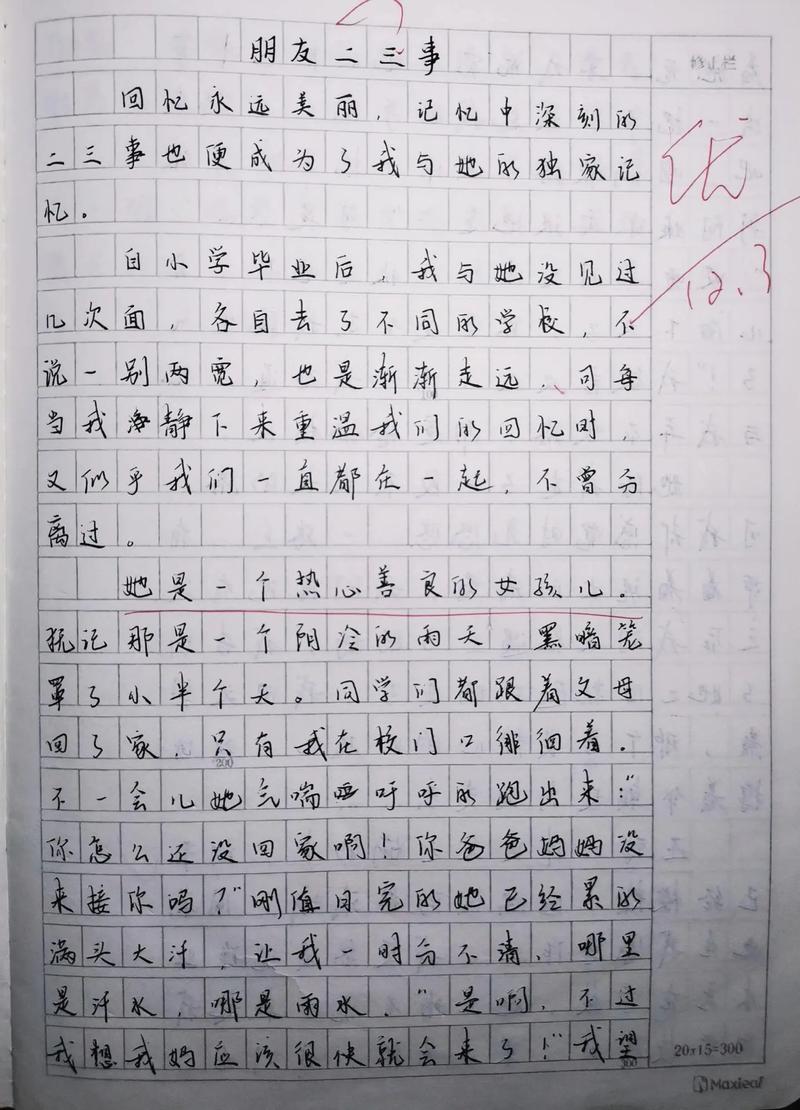 朋友二三事
修山栏
回忆永远美丽，记忆中深刻的
二三事也便成为了我与她的独家记
忆。
优
12.3
自小学毕业后，我与她没见过
几次面，各自去了不同的学校，不
说一别两宽，也是渐渐走远，可每
当我净静下来重温我们的回忆时，
又似乎我们一直都在一起，不曾分
离过。
她是一个热心善良的女孩儿。
犹记那是一个阴冷的雨天，黑暗笼
罩了小半个天。同学们都跟着父母
回了家，只有我在校门口徘徊着。
200
不一会儿她气喘吁呼的跑出来：“
你怎么还没回家啊！你爸爸妈妈没
来接你吗？”刚值日完的她已经累的
满头大汗，让我一时分不清，哪里
是汗水，哪是雨水，“是啊，不过
我想我妈应该很快就会来了！”我望
300
20x15=300
Maxleaf